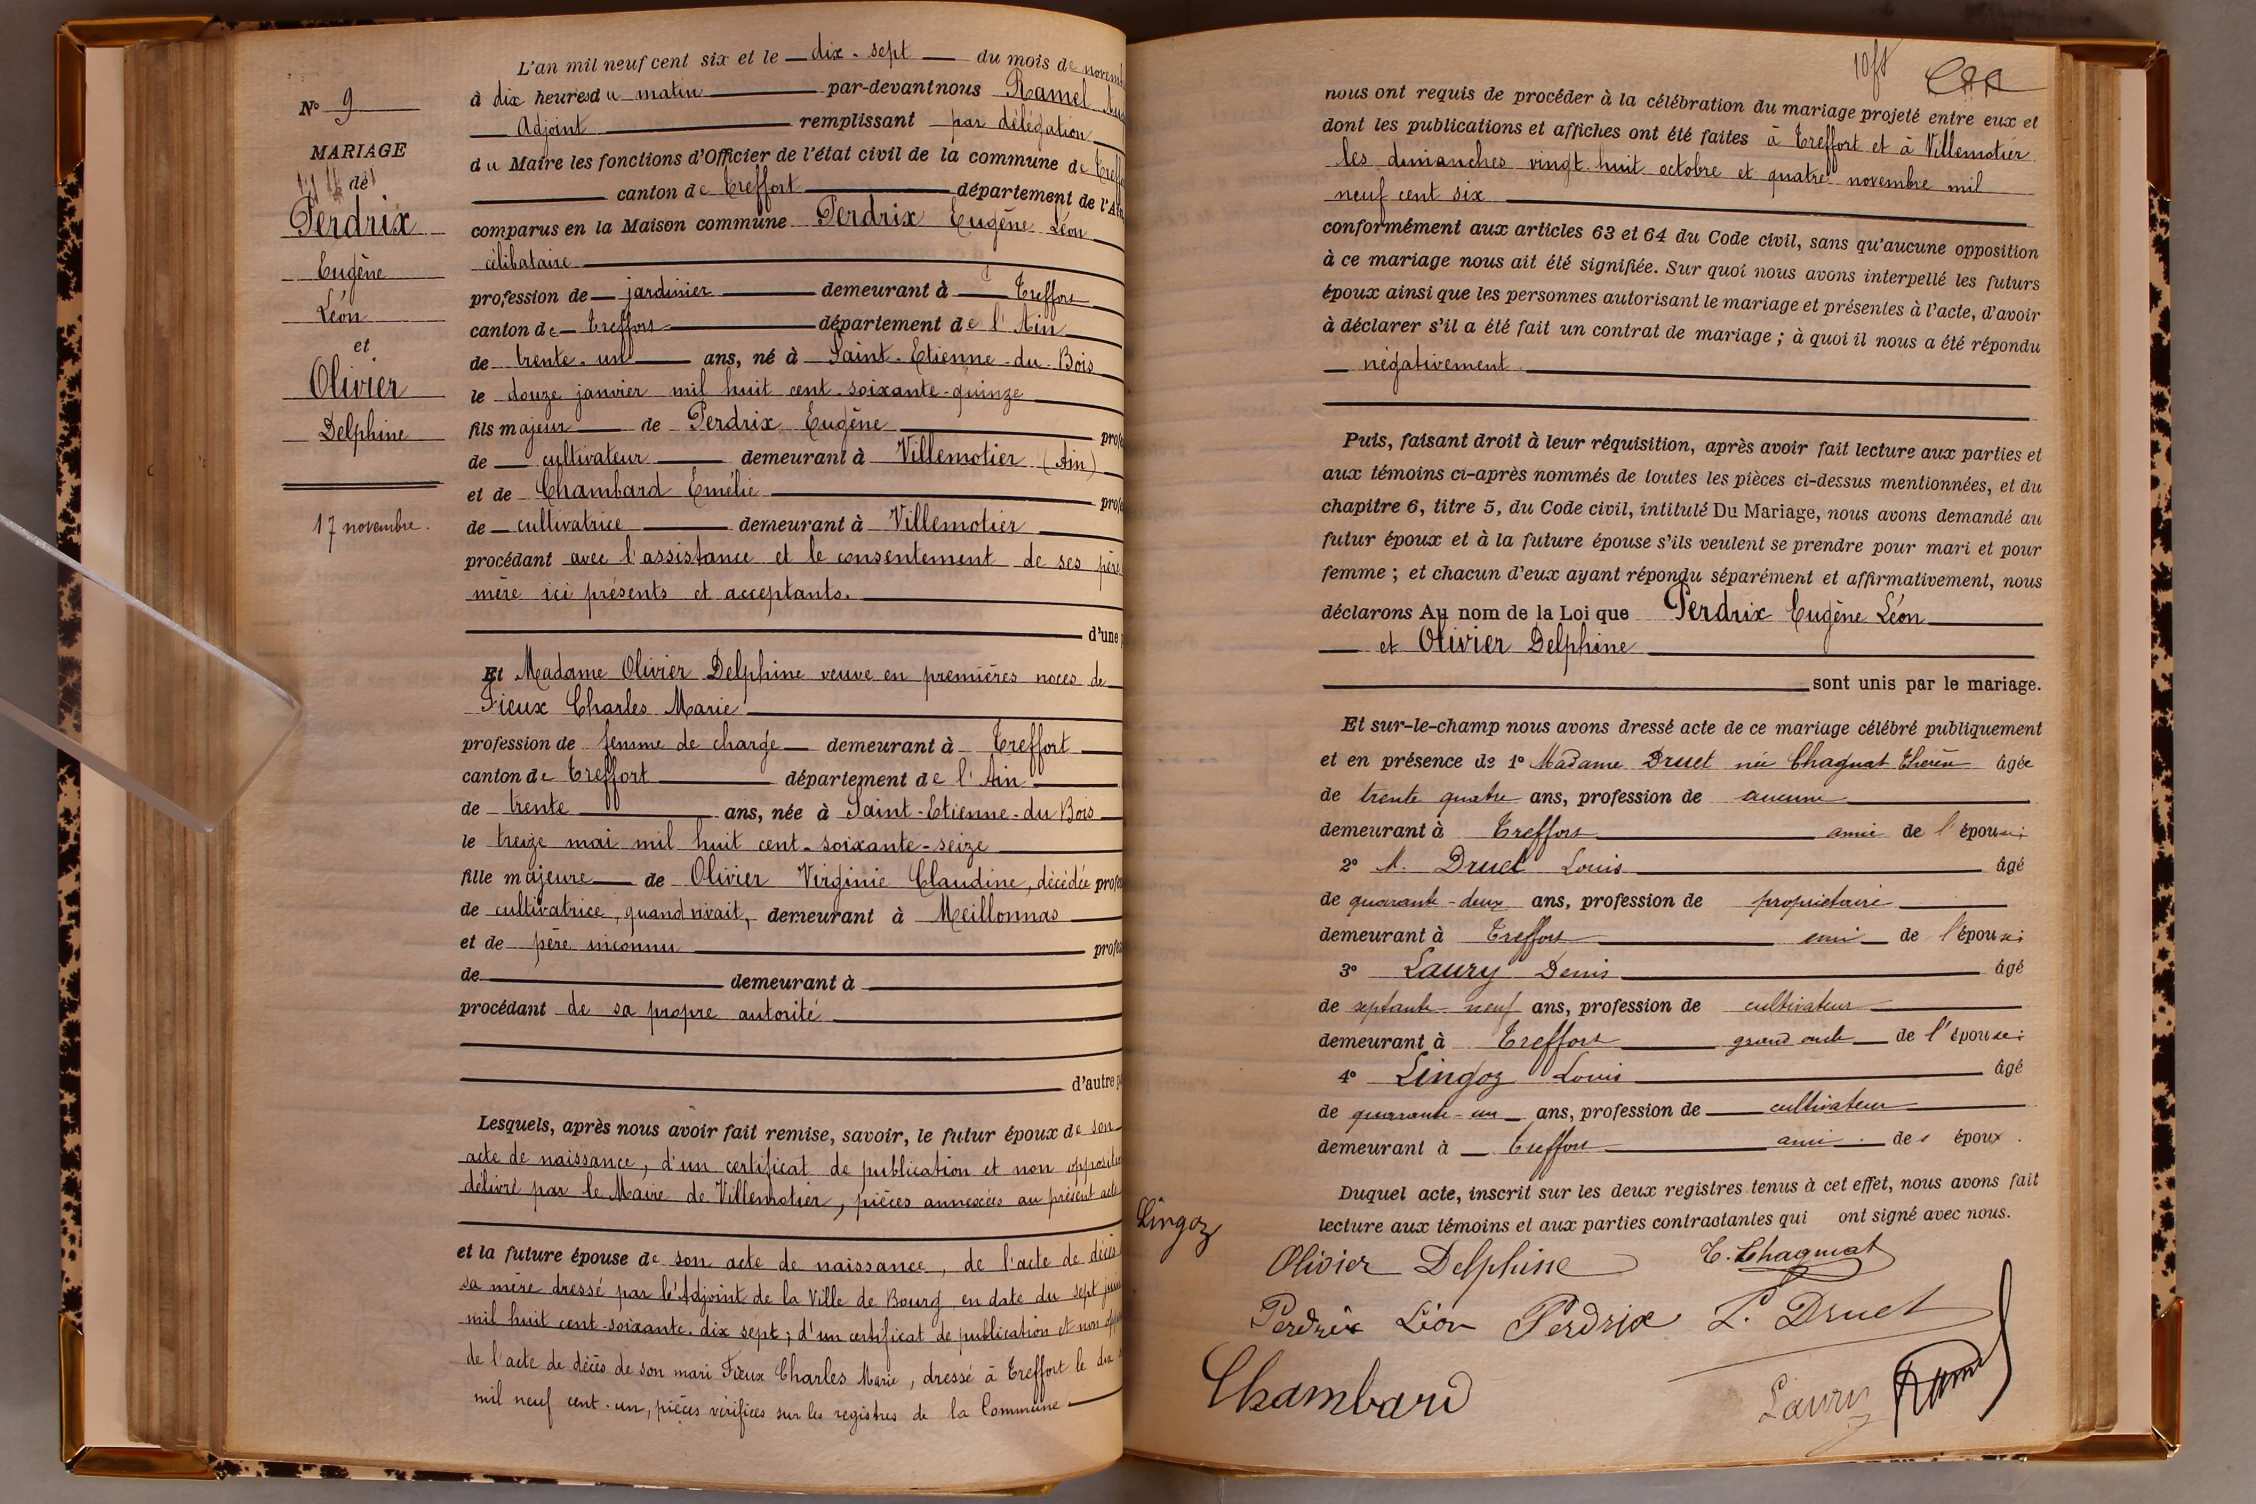 N° 9
MARIAGE
de
Perdrix
Eugène
Léon
et
Olivier
Delphine
17 novembre.
L'an mil neuf cent six et le dix-sept du mois de novemb
à dix heures du matin par-devant nous Ramel
Adjoint remplissant par délégation
du Maire les fonctions d'Officier de l'état civil de la commune de Treffo
canton de Treffort département de l'Ain
comparus en la Maison commune Perdrix Eugène Léon
célibataire
profession de jardinier demeurant à Treffort
canton de Treffort département de l'Ain
de trente-un ans, né à Saint-Etienne-du-Bois
le douze janvier mil huit cent-soixante-quinze
fils majeur de Perdrix Eugène profe
de cultivateur demeurant à Villemotier (Ain)
et de Chambard Emélie profe
de cultivatrice demeurant à Villemotier
procédant avec l'assistance et le consentement de ses père
mère ici présents et acceptants.
d'une p
Et Madame Olivier Delphine veuve en premières noces de
Fieux Charles Marie
profession de femme de charge demeurant à Treffort
canton de Treffort département de l'Ain
de trente ans, née à Saint-Etienne-du Bois
le treize mai mil huit cent-soixante-seize
fille majeure de Olivier Virginie Claudine, décédée profes
de cultivatrice, quand vivait, demeurant à Meillonnas
et de père inconnu profes
de demeurant à
procédant de sa propre autorité
d'autre pa
Lesquels, après nous avoir fait remise, savoir, le futur époux de son
acte de naissance, d'un certificat de publication et non oppositio
délivré par le Maire de Villemotier, pièces annexées au présent acte
et la future épouse de son acte de naissance, de l'acte de décès
sa mère dressé par l'Adjoint de la Ville de Bourg en date du sept
mil huit cent-soixante-dix sept; d'un certificat de publication et non
de l'acte de décès de son mari Fieux Charles Marie, dressé à Treffort le dix
mil neuf cent-un, pièces vérifiées sur les registres de la Commune
nous ont requis de procéder à la célébration du mariage projeté entre eux et
dont les publications et affiches ont été faites à Treffort et à Villemotier
les dimanches vingt-huit octobre et quatre novembre mil
neuf cent six
conformément aux articles 63 et 64 du Code civil, sans qu'aucune opposition
à ce mariage nous ait été signifiée. Sur quoi nous avons interpellé les futurs
époux ainsi que les personnes autorisant le mariage et présentes à l'acte, d'avoir
à déclarer s'il a été fait un contrat de mariage ; à quoi il nous a été répondu
négativement
Puis, faisant droit à leur réquisition, après avoir fait lecture aux parties et
aux témoins ci-après nommés de toutes les pièces ci-dessus mentionnées, et du
chapitre 6, titre 5, du Code civil, intitulé Du Mariage, nous avons demandé au
futur époux et à la future épouse s'ils veulent se prendre pour mari et pour
femme ; et chacun d'eux ayant répondu séparément et affirmativement, nous
déclarons Au nom de la Loi que Perdrix Eugène Léon
et Olivier Delphine
sont unis par le mariage.
Et sur-le-champ nous avons dressé acte de ce mariage célébré publiquement
et en présence de 1° Madame Druet née Chagnat âgée
de trente quatre ans, profession de aucune
demeurant à Treffort amie de l'épouse;
2° M. Druet Louis âgé
de quarante-deux ans, profession de propriétaire
demeurant à Treffort ami de l'épouse;
3° Laury Denis âgé
de septante-neuf ans, profession de cultivateur
demeurant à Treffort grand oncle de l'épouse;
4° Lingoz Louis âgé
de quarante-un ans, profession de cultivateur
demeurant à Treffort ami des époux.
Duquel acte, inscrit sur les deux registres tenus à cet effet, nous avons fait
lecture aux témoins et aux parties contractantes qui ont signé avec nous.
Lingoz
Olivier Delphine T. Chagnat
Perdrix Léon Perdrix L. Druet
Chambard Laury Ramel